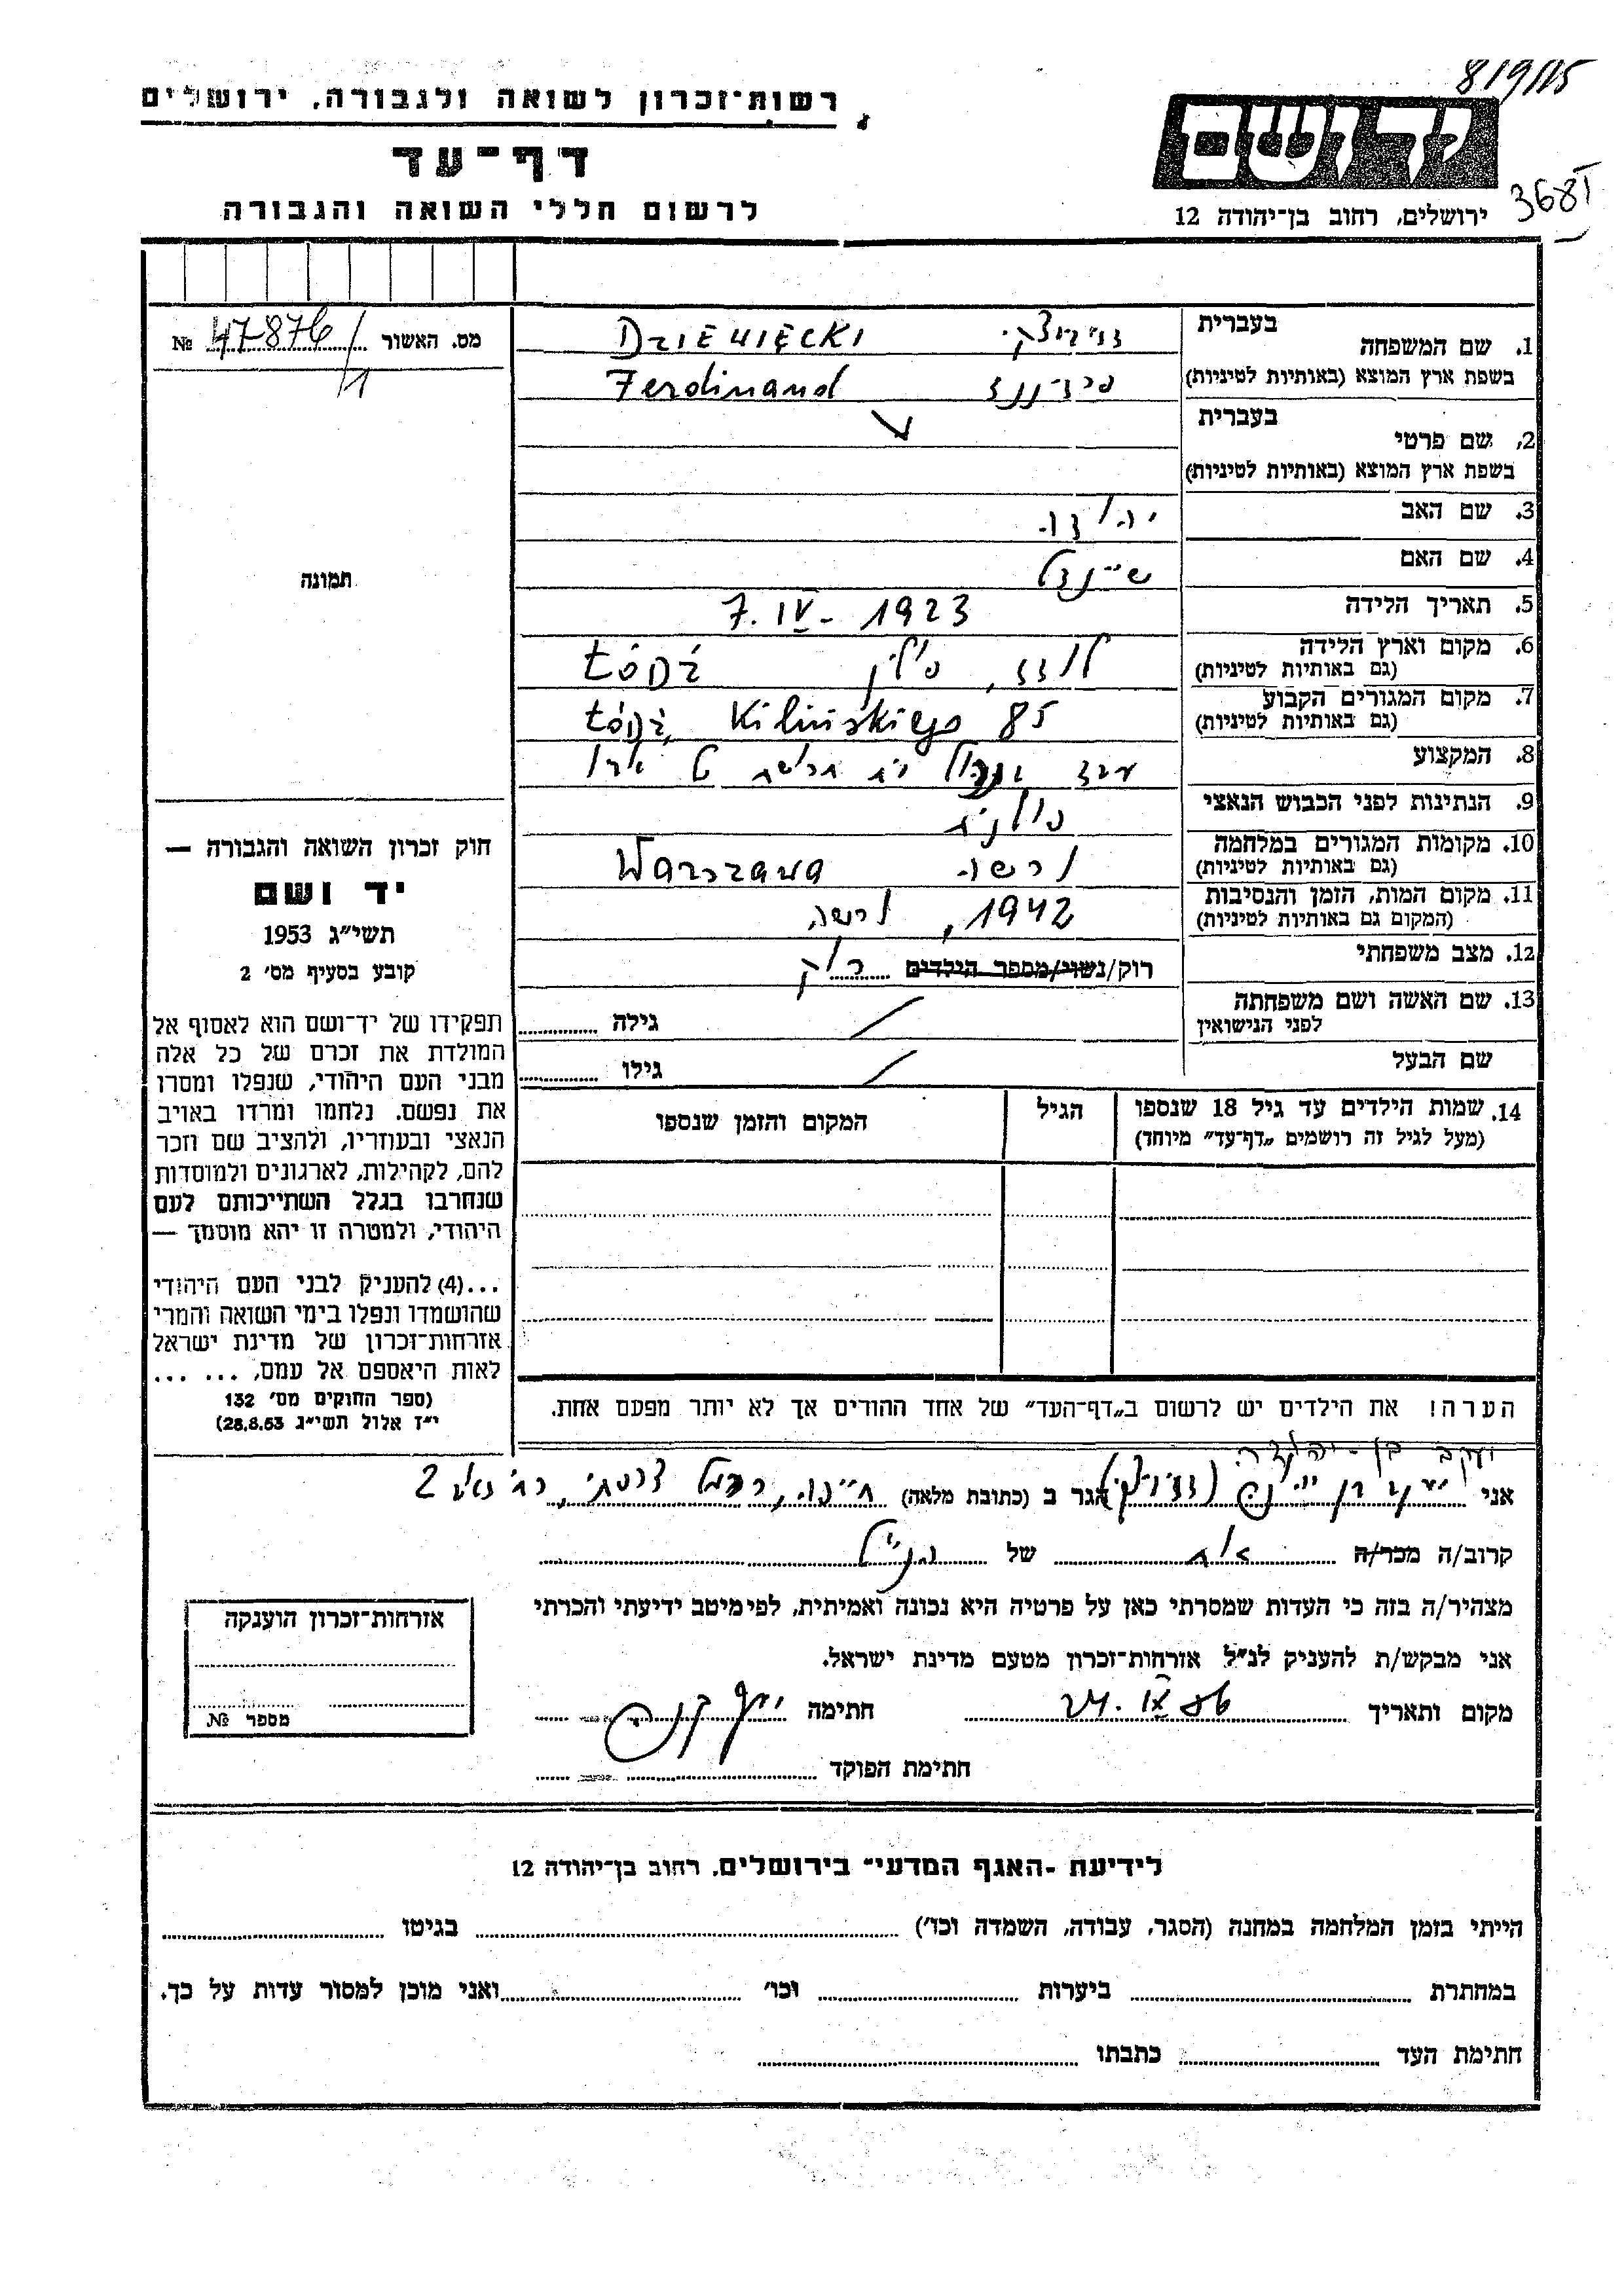 8/9/115
רשות־זכרון לשואה ולגבורה, ירושלים
יד ושם
דף־עד
לרשום חללי השואה והגבורה
ירושלים, רחוב בן־יהודה 12
מס. האשור № 47876
1. שם המשפחה
בעברית
DZIENIĘCKI
בשפת ארץ המוצא (באותיות לטיניות)
Ferdinand פרדיננד
2. שם פרטי
בעברית
בשפת ארץ המוצא (באותיות לטיניות)
3. שם האב יהודה
4. שם האם שיינדל
תמונה
5. תאריך הלידה 7. IV - 1923
6. מקום וארץ הלידה לודז, פולין ŁÓDŹ
(גם באותיות לטיניות)
7. מקום המגורים הקבוע ŁÓDŹ, Kilińskiego 85
(גם באותיות לטיניות)
8. המקצוע
9. הנתינות לפני הכבוש הנאצי פולנית
10. מקומות המגורים במלחמה ורשה Warszawa
(גם באותיות לטיניות)
11. מקום המות, הזמן והנסיבות 1942, ורשה
(המקום גם באותיות לטיניות)
12. מצב משפחתי רוק/נשוי/מספר הילדים רוק
13. שם האשה ושם משפחתה גילה
לפני הנישואין
שם הבעל גילו
14. שמות הילדים עד גיל 18 שנספו הגיל המקום והזמן שנספו
(מעל לגיל זה רושמים „דף־עד" מיוחד)
חוק זכרון השואה והגבורה —
יד ושם
תשי״ג 1953
קובע בסעיף מס׳ 2
תפקידו של יד־ושם הוא לאסוף אל
המולדת את זכרם של כל אלה
מבני העם היהודי, שנפלו ומסרו
את נפשם. נלחמו ומרדו באויב
הנאצי ובעוזריו, ולהציב שם וזכר
להם, לקהילות, לארגונים ולמוסדות
שנחרבו בגלל השתייכותם לעם
היהודי, ולמטרה זו יהא מוסמך —
...(4) להעניק לבני העם היהודי
שהושמדו ונפלו בימי השואה והמרי
אזרחות־זכרון של מדינת ישראל
לאות היאספם אל עמם, ... ...
(ספר החוקים מס׳ 132
י״ז אלול תשי״ג 28.8.53)
הערה! את הילדים יש לרשום ב„דף־העד" של אחד ההורים אך לא יותר מפעם אחת.
יעקב בן־יהודה
אני הגר ב (כתובת מלאה) חיפה, 2
קרוב/ה מכר/ה אח של הנ״ל
מצהיר/ה בזה כי העדות שמסרתי כאן על פרטיה היא נכונה ואמיתית, לפי מיטב ידיעתי והכרתי
אני מבקש/ת להעניק לנ״ל אזרחות־זכרון מטעם מדינת ישראל.
מקום ותאריך חתימה
חתימת הפוקד
אזרחות־זכרון הוענקה
מספר №
לידיעת -האגף המדעי״ בירושלים, רחוב בן־יהודה 12
הייתי בזמן המלחמה במחנה (הסגר, עבודה, השמדה וכו׳) בגיטו
במחתרת ביערות וכו׳ ואני מוכן למסור עדות על כך.
חתימת העד כתבתו